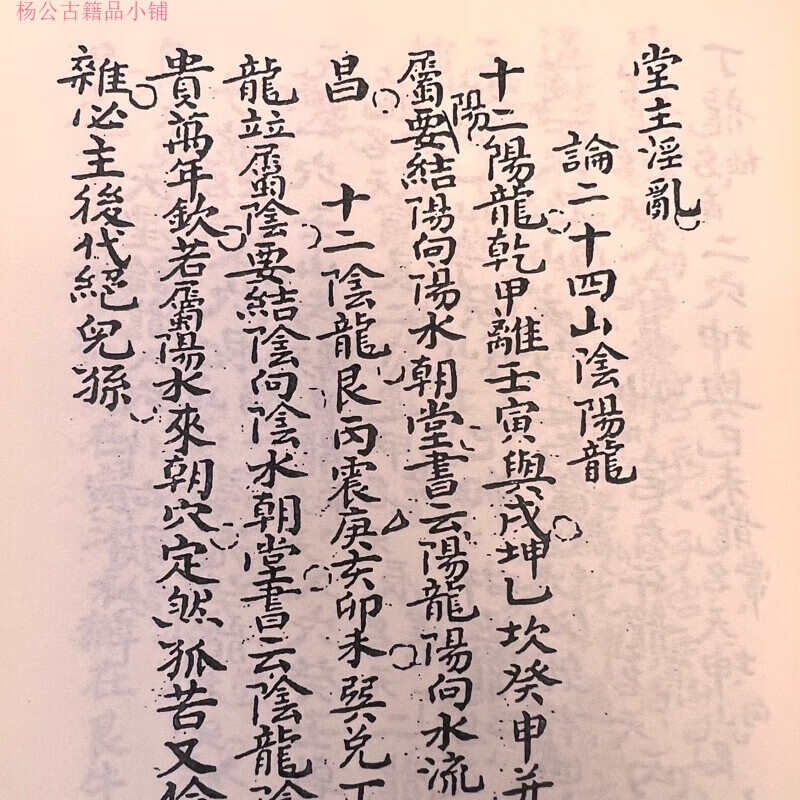 杨公古籍品小铺
堂主淫亂
論二十四山陰陽龍
十二陽龍乾甲離壬寅與戌坤乙坎癸申并
陽
屬要結陽向陽水朝堂書云陽龍陽向水流
昌
十二陰龍艮丙震庚亥卯未巽兑丁
龍竝屬陰要結陰向陰水朝堂書云陰龍陰
貴萬年欽若屬陽水來朝穴定然孤苦又
雜必主後代絕兒孫